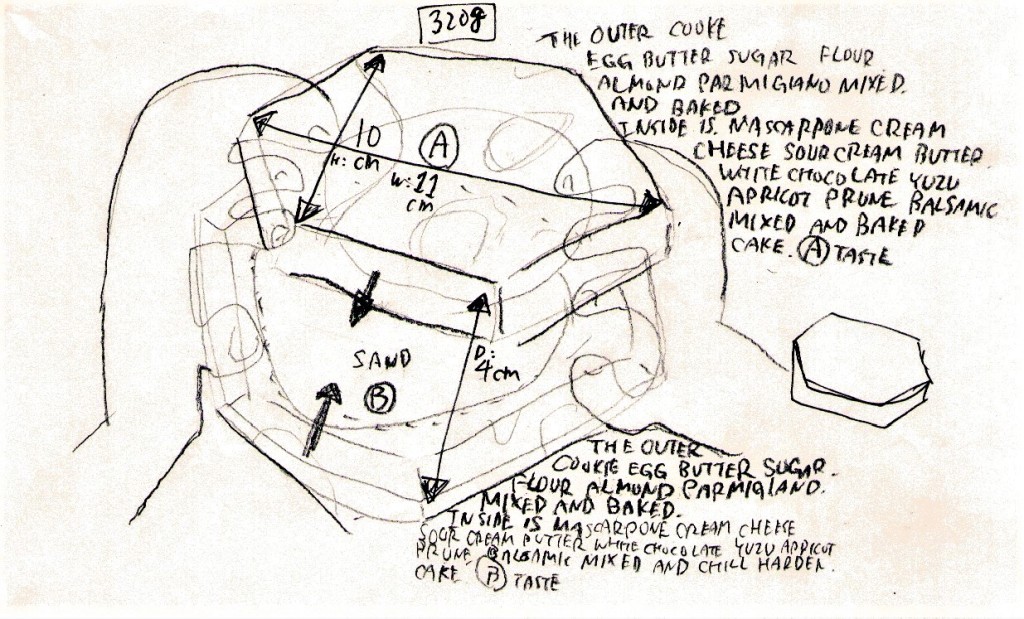 320g
THE OUTER COOKE
EGG BUTTER SUGAR FLOUR
ALMOND PARMIGIANO MIXED.
AND BAKED
INSIDE IS MASCARPONE CREAM
CHEESE SOUR CREAM BUTTER
WHITE CHOCOLATE YUZU
APRICOT PRUNE BALSAMIC
MIXED AND BAKED
CAKE. Ⓐ TASTE
10
H: cm
Ⓐ
W: 11
cm
SAND
Ⓑ
D:
4cm
THE OUTER
COOKIE EGG BUTTER SUGAR.
FLOUR ALMOND PARMIGIANO.
MIXED AND BAKED.
INSIDE IS MASCARPONE CREAM CHEESE
SOUR CREAM BUTTER WHITE CHOCOLATE YUZU APRICOT
PRUNE BALSAMIC MIXED AND CHILL HARDEN.
CAKE Ⓑ TASTE